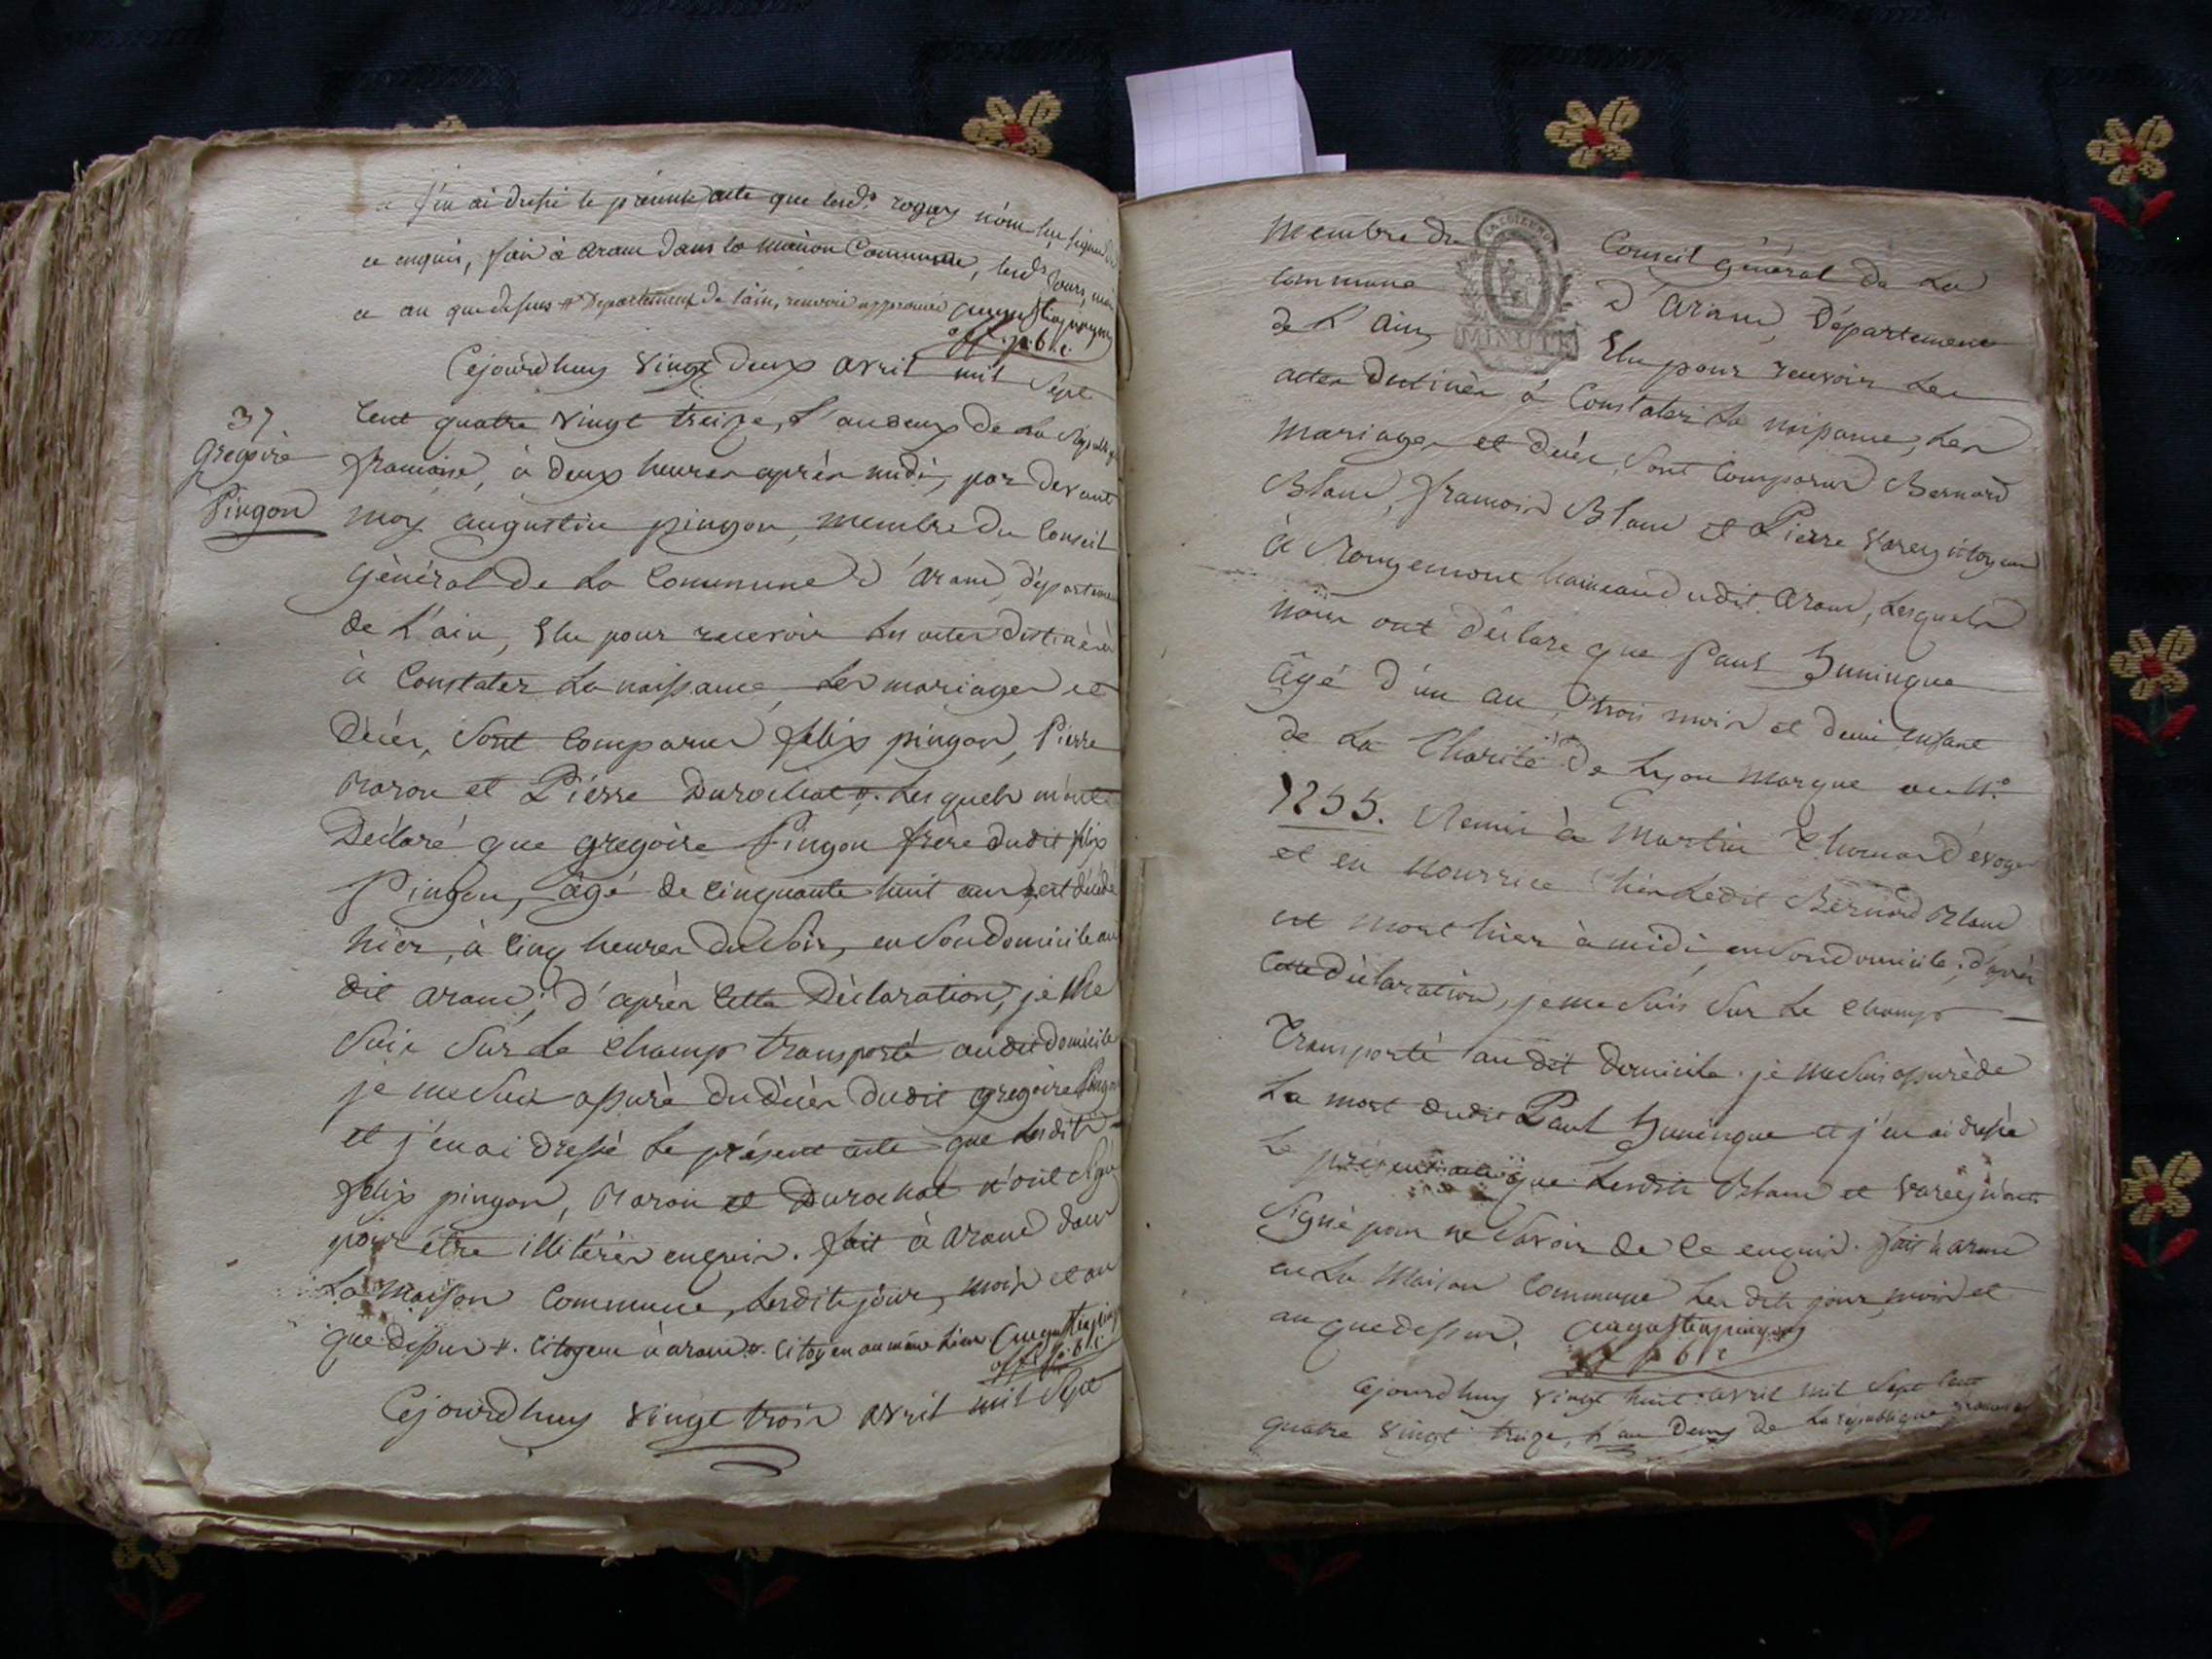 j'en ai dressé le présent acte que lesd.s
ce enquis, fait à aranc dans la maison Commune, lesd.s Jours, mois
et an que dessus # Departement de l'ain, renvoie approuvé augustin pingon
off. p. b l. c.
Cejourd'huy Vingt deux avril mil Sept
Cent quatre Vingt treize, L'an deux de La République
37
Gregoire
Pingon
francoise, à deux heures après midi, par devant
moy augustin pingon, membre du Conseil
général de La Commune d'aranc, département
de L'ain, Elu pour recevoir Les actes destinés
à Constater La naissance, Les mariages et
Décès, Sont Comparus felix pingon, Pierre
et Pierre Durochat #. Lesquels m'ont
Déclaré que gregoire Pingon frère dudit felix
Pingon, âgé de Cinquante huit ans, est décédé
hier, à Cinq heures du Soir, en Son Domicile au
dit aranc; d'après Cette Déclaration, je me
Suis Sur Le Champ transporté audit domicile
je me Suis assuré du décès dudit gregoire Pingon
et j'en ai dressé Le présent acte que Lesdits
felix pingon, et Durochat n'ont Signé
pour être illitérés enquis. fait à aranc dans
La Maison Commune, Lesdits jour, mois et an
que dessus #. Citoyens à aranc #. Citoyen au même Lieu. augustin pingon
off. p. b l. c
Cejourd'huy Vingt trois avril mil Sept
Membre du Conseil général de La
Commune d'aranc, Département
de L'ain, Elu pour recevoir Les
MINUTE
actes destinés à Constater La naissance, Les
Mariages et décès, Sont Comparus Bernard
Blanc, francois Blanc et Pierre Varey citoyens
à Rougemont hameau dudit aranc, Lesquels
nous ont déclaré que Paul Huningue
âgé d'un an, trois mois et demi Enfant
de La Charité de Lyon Marque au N.o
1255. Remis à Martin Thomas
et en nourrice Chés Ledit Bernard Blanc
est mort hier à midi, en Son Domicile; d'après
Cette déclaration, je me Suis Sur Le Champ
Transporté au dit Domicile. je me Suis assuré de
La mort dudit Paul Huningue et j'en ai dressé
Le présent acte que Lesdits Blanc et Varey n'ont
Signé pour ne Savoir de Ce enquis. fait à aranc
en La Maison Commune Les dits jour, mois et
an que dessus, augustin pingon
off p b l c
Cejourd'huy Vingt huit avril mil Sept Cent
quatre Vingt treize, L'an Deux de La république francoise